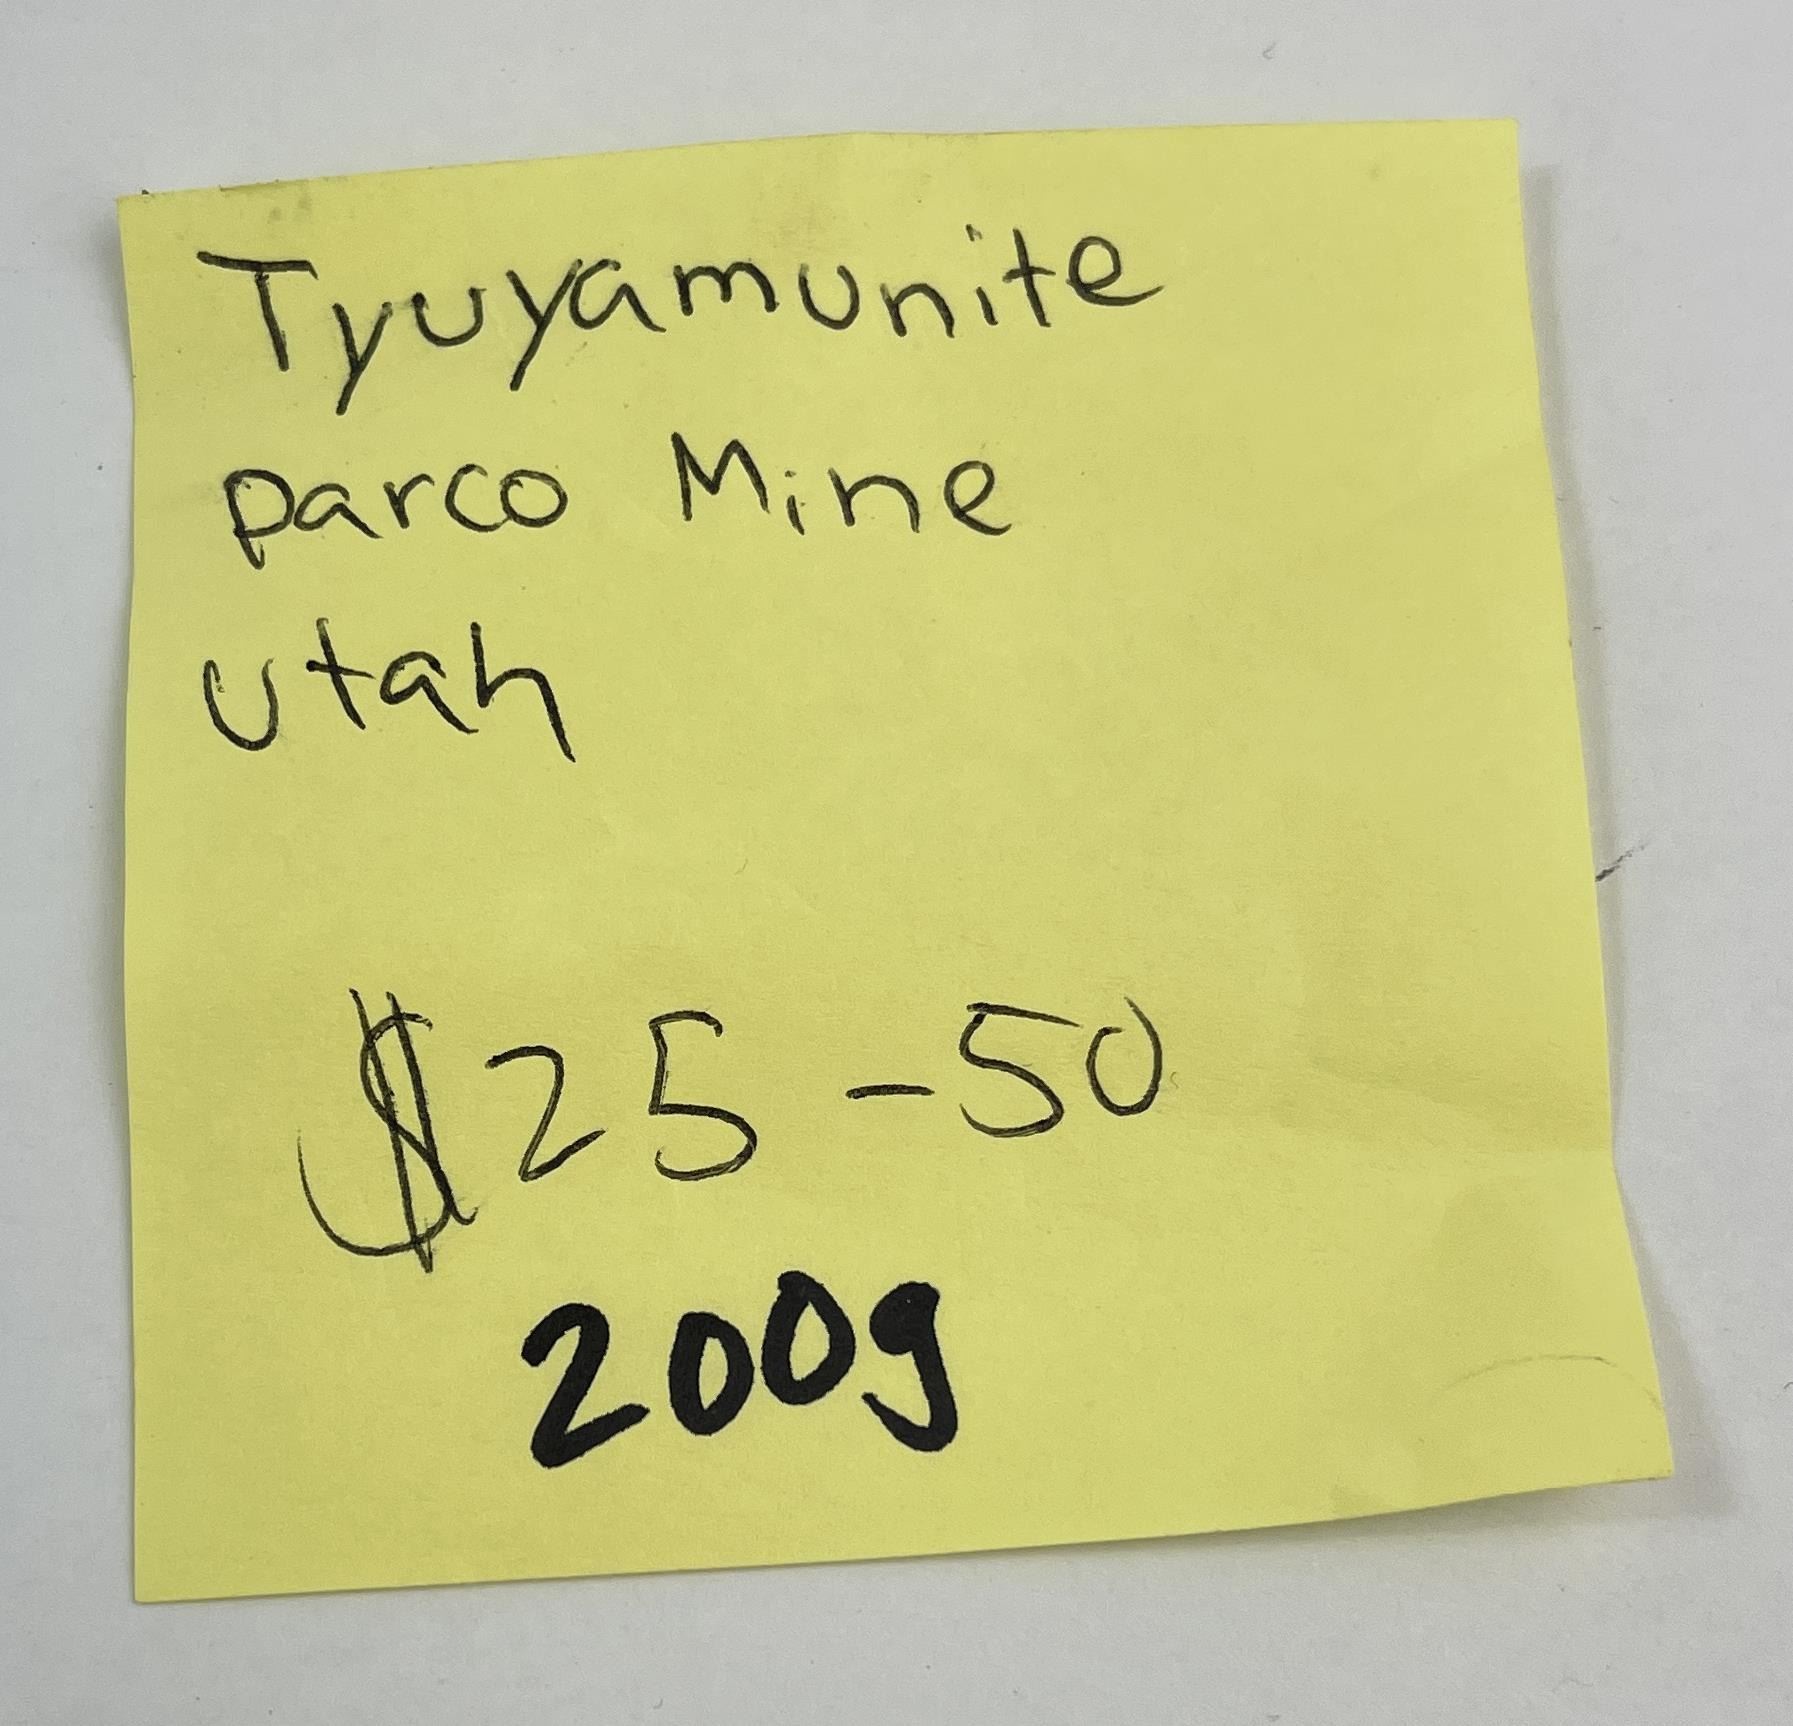 Tyuyamunite
parco Mine
Utah
$25-50
200g